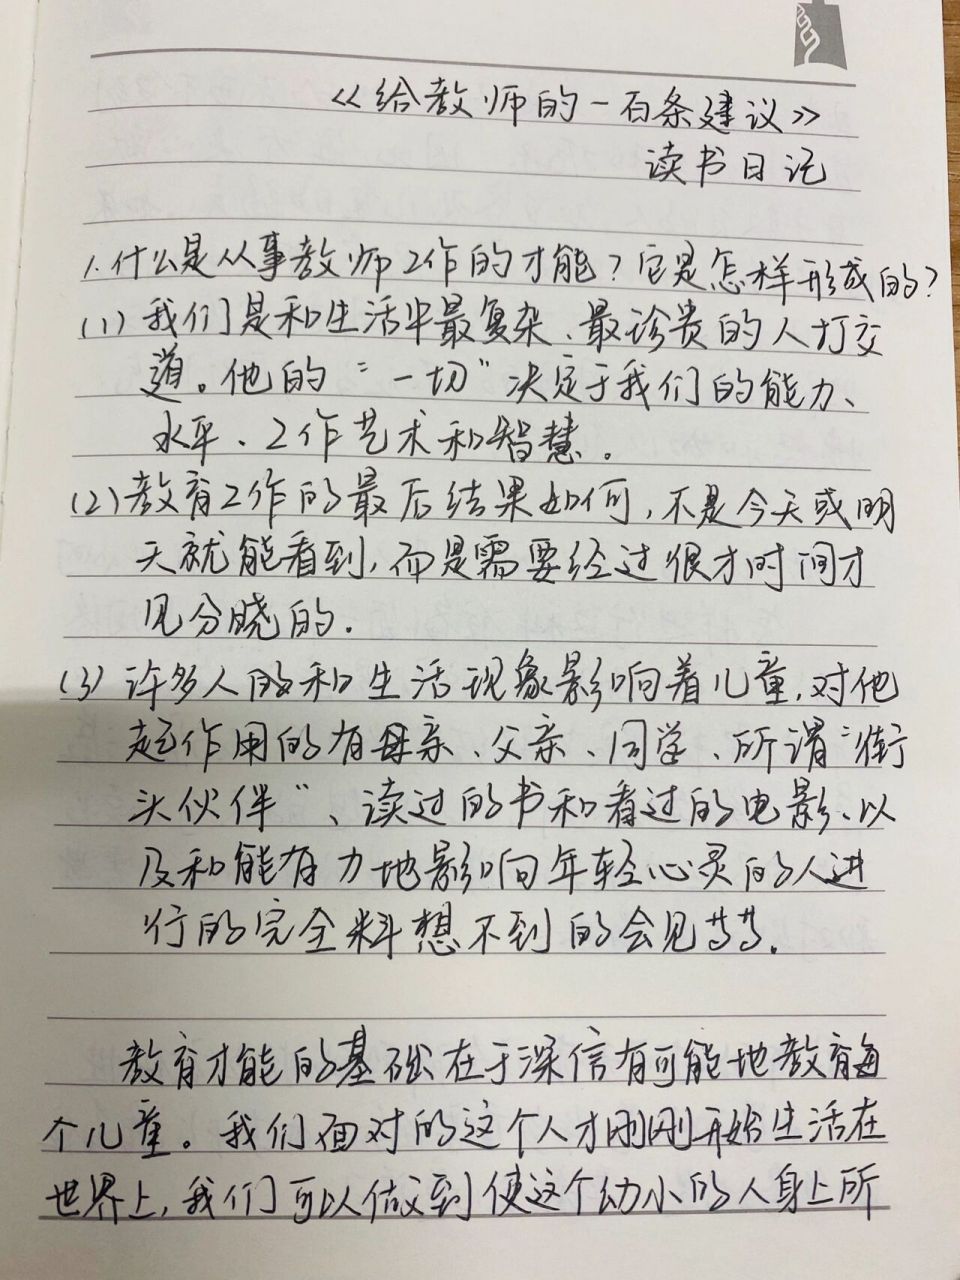 《给教师的一百条建议》
读书日记
1.什么是从事教师工作的才能?它是怎样形成的?
(1)我们是和生活中最复杂、最珍贵的人打交
道。他的“一切”决定于我们的能力、
水平、工作艺术和智慧。
(2)教育工作的最后结果如何,不是今天或明
天就能看到,而是需要经过很才时间才
见分晓的.
(3)许多人的和生活现象影响着儿童,对他
起作用的有母亲、父亲、同学、所谓“街
头伙伴”、读过的书和看过的电影、以
及和能有力地影响年轻心灵的人进
行的完全料想不到的会见节节.
教育才能的基础在于深信有可能地教育每
个儿童。我们面对的这个人才刚刚开始生活在
世界上,我们可以做到使这个幼小的人身上所